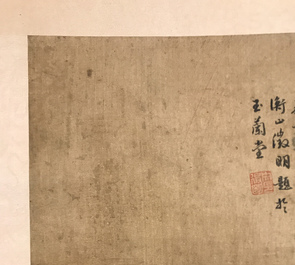 衡山徵明題於
玉蘭堂